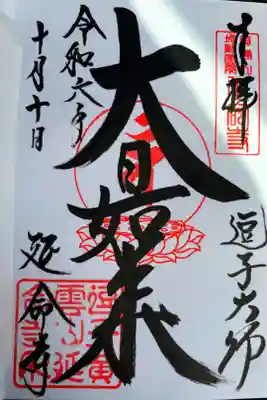 奉拝
逗子大師
大日如来
令和六年
十月十日
延命寺